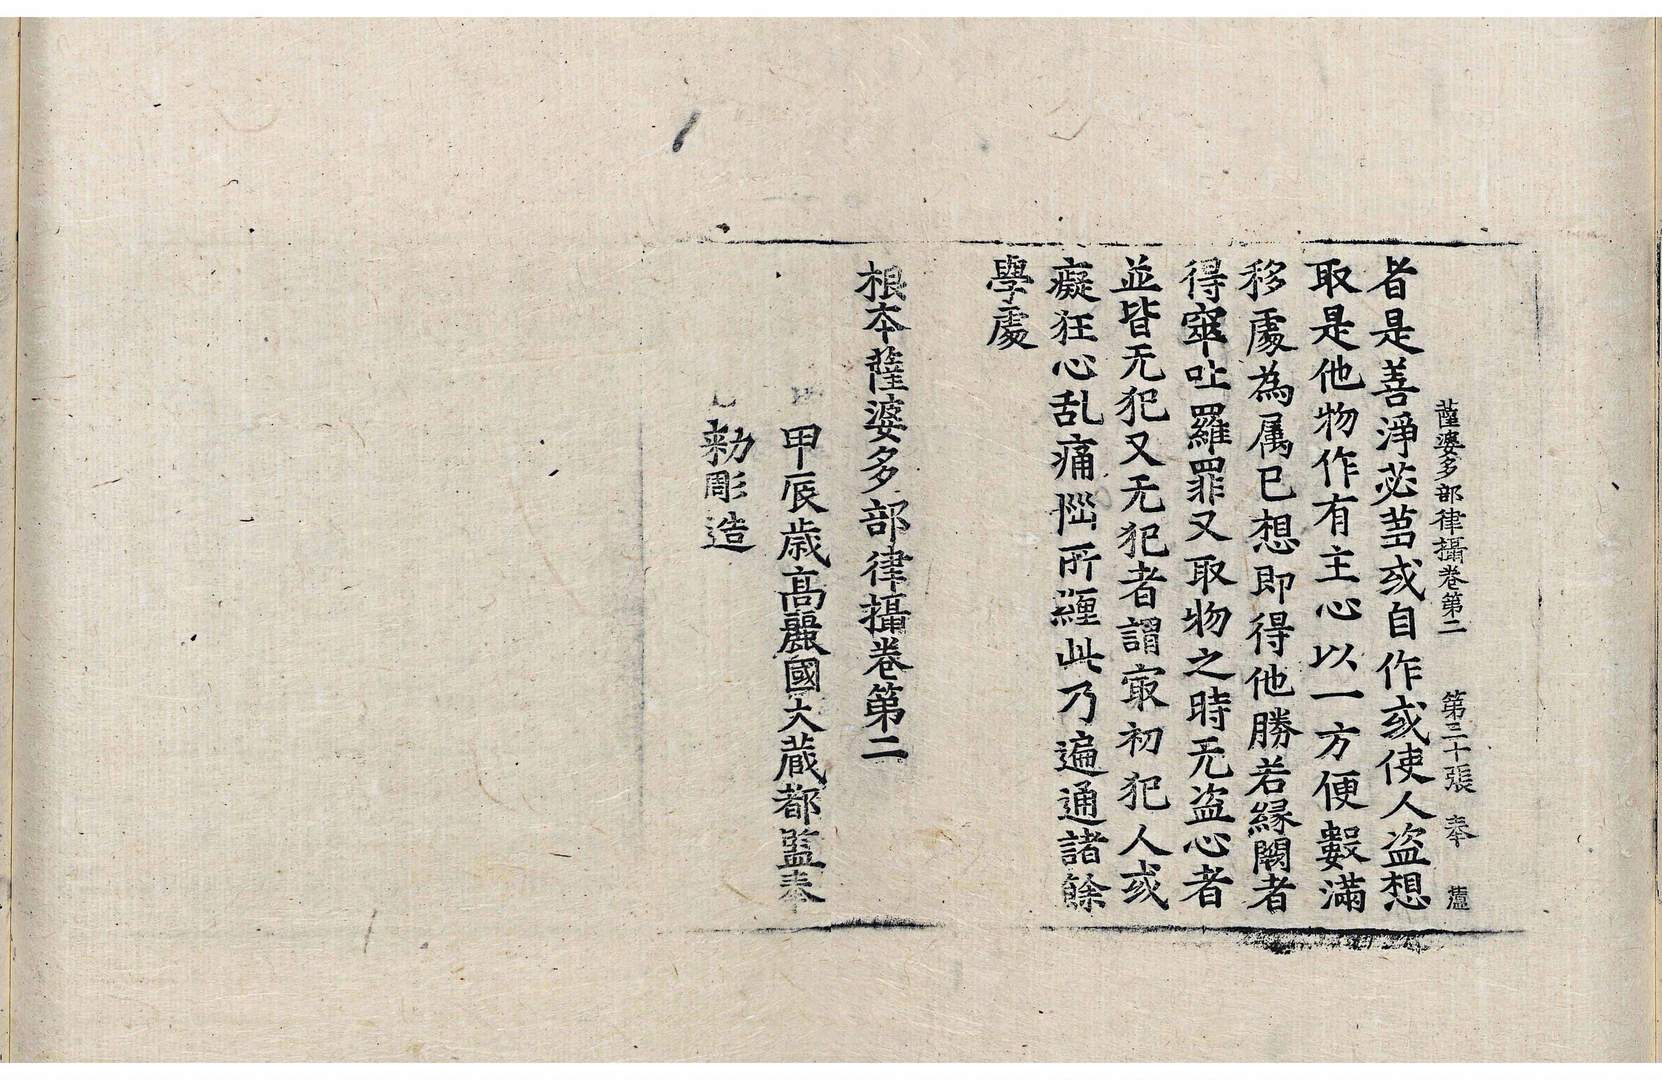 薩婆多部律攝卷第二 第三十張 奉
者是善淨苾蒭或自作或使人盗想
取是他物作有主心以一方便數滿
移處為属已想即得他勝若縁闕者
得窣吐羅罪又取物之時无盗心者
並皆无犯又无犯者謂㝡初犯人或
癡狂心乱痛惱所纒此乃遍通諸餘
學處
根本薩婆多部律攝卷第二
甲辰歳高麗國大藏都監奉
勑彫造